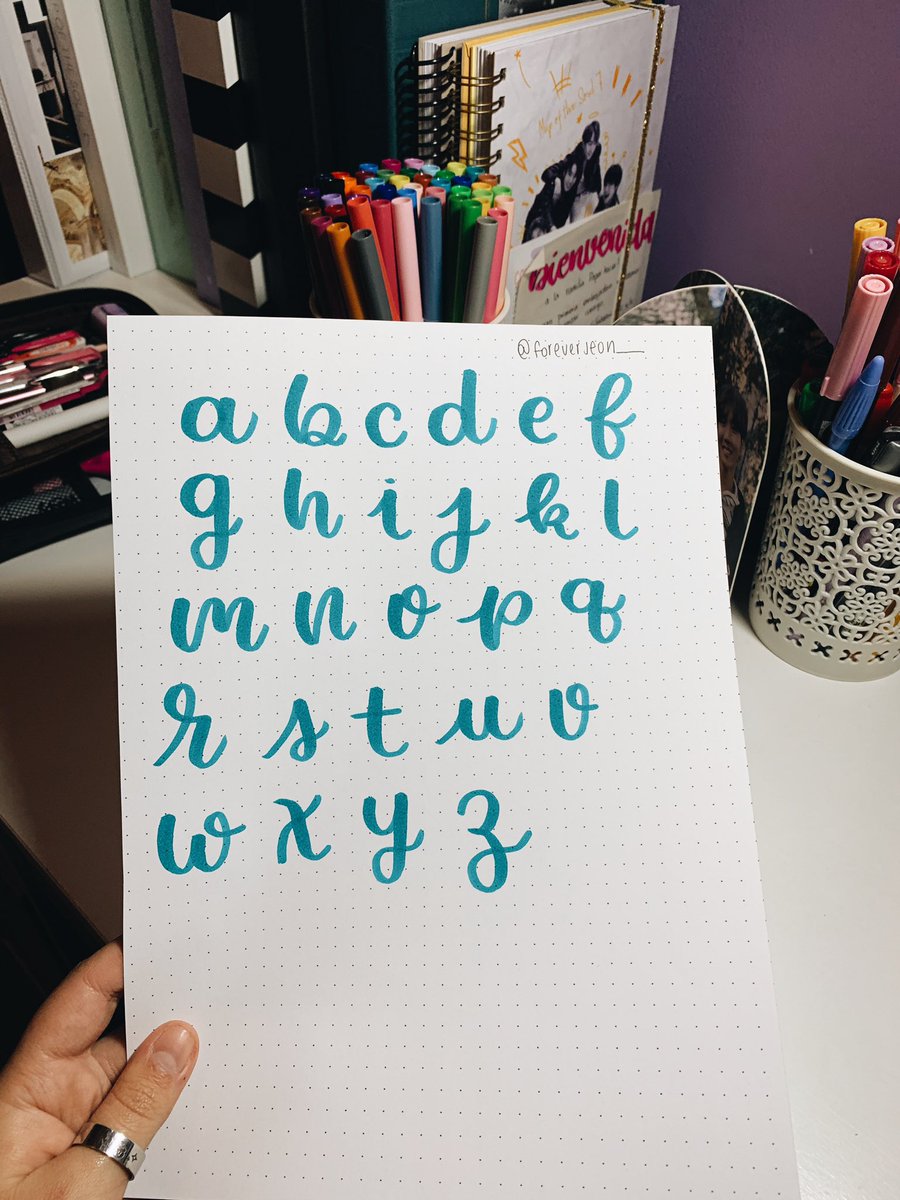 Map of the Soul 7
Bienvenida
a la familia
@foreverjeon__
a b c d e f
g h i j k l
m n o p q
r s t u v
w x y z